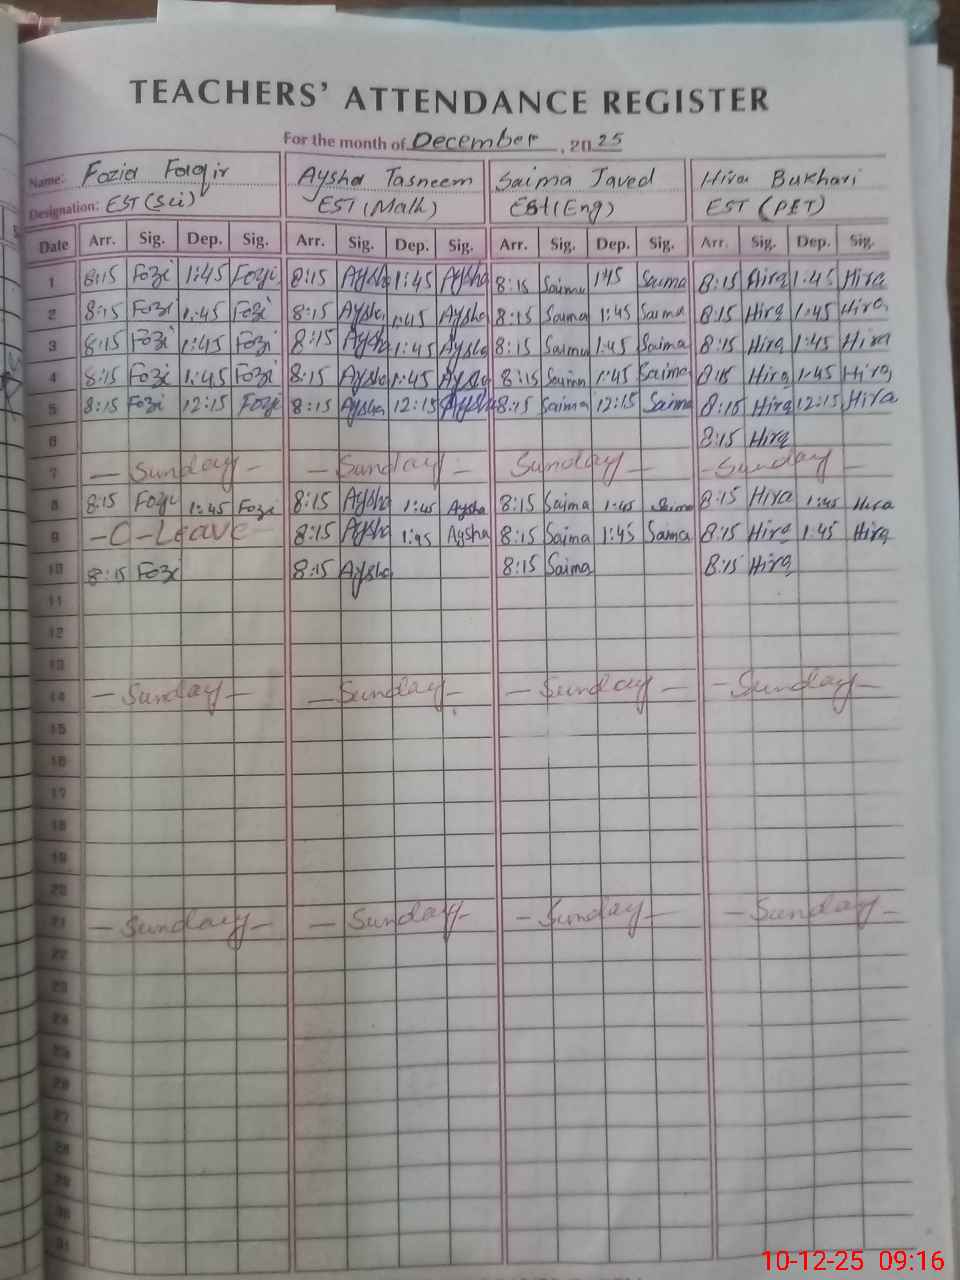 TEACHERS' ATTENDANCE REGISTER
For the month of December, 2025
Name: Fozia Faqir Aysha Tasneem Saima Javed Hira Bukhari
Designation: EST (Sci) EST (Math) EST (Eng) EST (PET)
Date Arr. Sig. Dep. Sig. Arr. Sig. Dep. Sig. Arr. Sig. Dep. Sig. Arr. Sig. Dep. Sig.
1 8:15 Fozi 1:45 Fozi 8:15 Aysha 1:45 Aysha 8:15 Saima 1:45 Saima 8:15 Hira 1:45 Hira
2 8:15 Fozi 1:45 Fozi 8:15 Aysha 1:45 Aysha 8:15 Saima 1:45 Saima 8:15 Hira 1:45 Hira
3 8:15 Fozi 1:45 Fozi 8:15 Aysha 1:45 Aysha 8:15 Saima 1:45 Saima 8:15 Hira 1:45 Hira
4 8:15 Fozi 1:45 Fozi 8:15 Aysha 1:45 Aysha 8:15 Saima 1:45 Saima 8:15 Hira 1:45 Hira
5 8:15 Fozi 12:15 Fozi 8:15 Aysha 12:15 Aysha 8:15 Saima 12:15 Saima 8:15 Hira 12:15 Hira
6 8:15 Hira
7 — Sunday — — Sunday — Sunday — — Sunday —
8 8:15 Fozi 1:45 Fozi 8:15 Aysha 1:45 Aysha 8:15 Saima 1:45 Saima 8:15 Hira 1:45 Hira
9 — C — Leave — 8:15 Aysha 1:45 Aysha 8:15 Saima 1:45 Saima 8:15 Hira 1:45 Hira
10 8:15 Fozi 8:15 Aysha 8:15 Saima 8:15 Hira
11
12
13
14 — Sunday — — Sunday — — Sunday — — Sunday —
15
16
17
18
19
20
21 — Sunday — — Sunday — — Sunday — — Sunday —
22
23
24
25
26
27
28
29
30
31
10-12-25 09:16